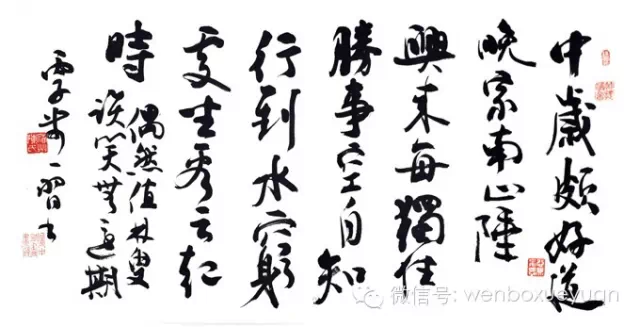 中歲頗好道
晚家南山陲
興来每獨往
勝事空自知
行到水窮
處坐看云起
時偶然值林叟
談笑無還期
習書
微信号: wenboxueyuan